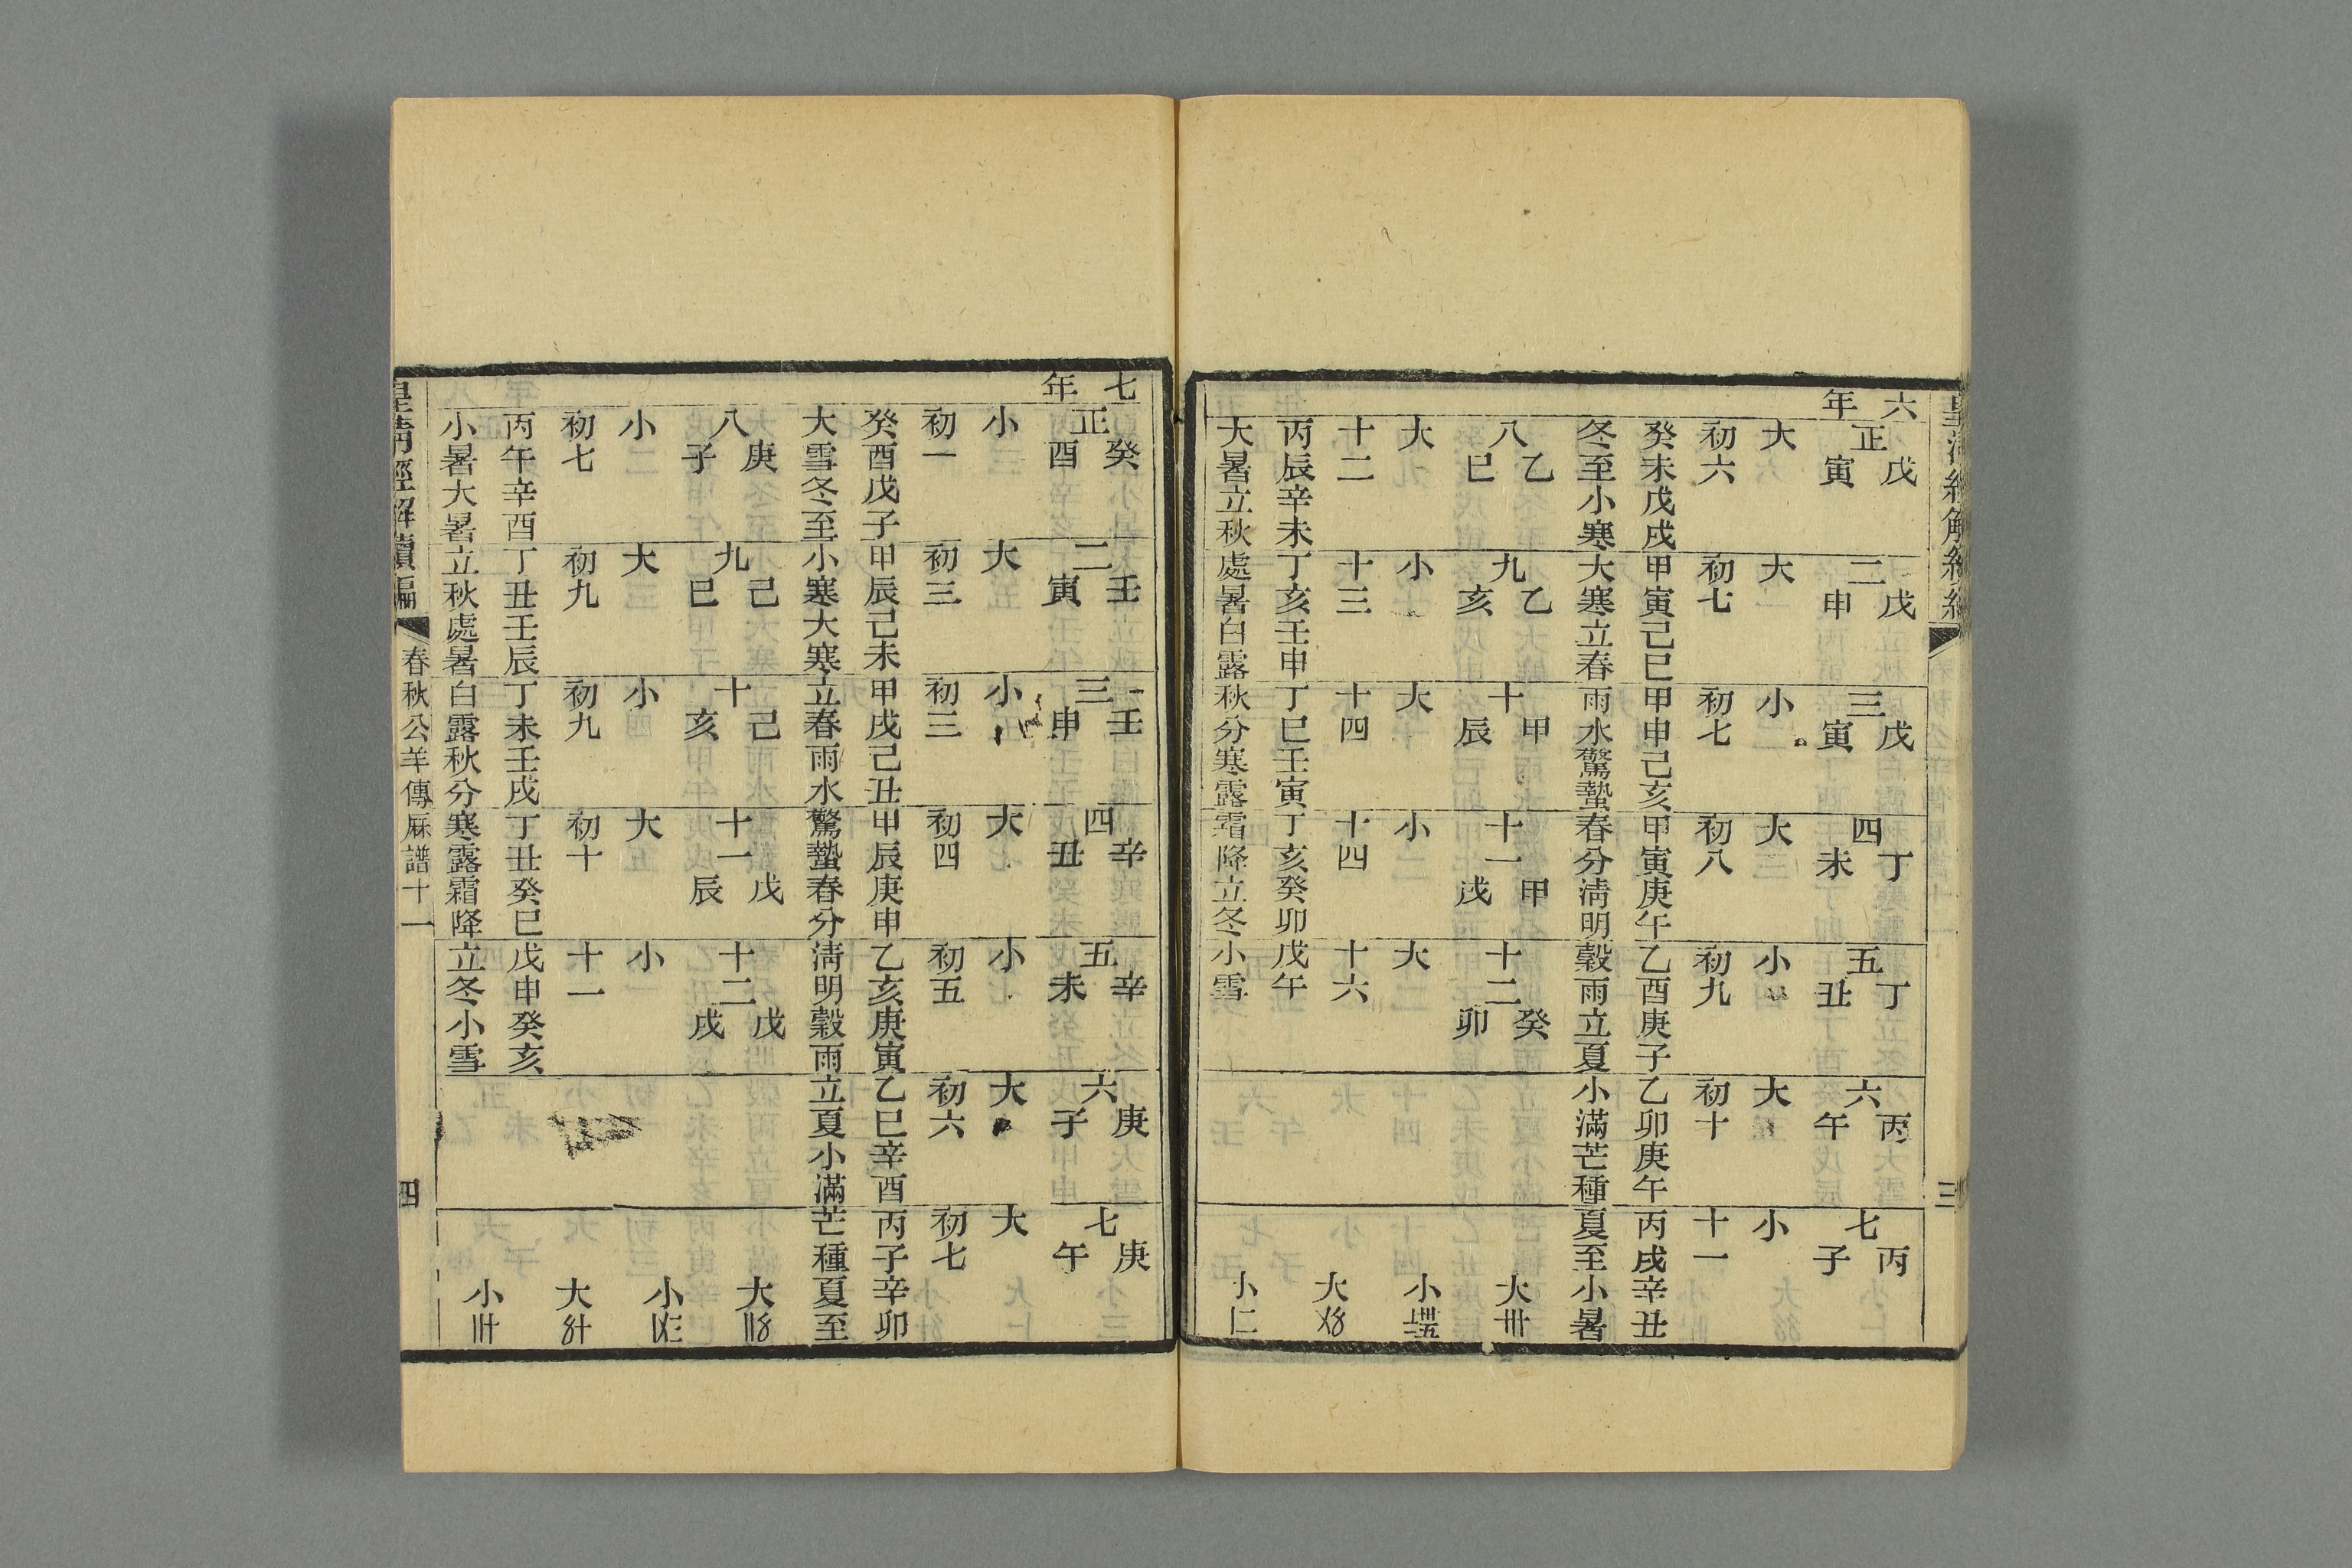 皇清經解續編 三
六年
正戊寅 二戊申 三戊寅 四丁未 五丁丑 六丙午 七丙子
大 大 小 大 小 大 小
初六 初七 初七 初八 初九 初十 十一
癸未戊戌 甲寅己巳 甲申己亥 甲寅庚午 乙酉庚子 乙卯庚午 丙戌辛丑
冬至小寒大寒立春雨水驚蟄春分淸明穀雨立夏小滿芒種夏至小暑
八乙巳 九乙亥 十甲辰 十一甲戌 十二癸卯
大 小 大 小 大
十二 十三 十四 十四 十六
丙辰辛未 丁亥壬申 丁巳壬寅 丁亥癸卯 戊午
大暑立秋處暑白露秋分寒露霜降立冬小雪
大
小
大
小
七年
正癸酉 二壬寅 三壬申 四辛丑 五辛未 六庚子 七庚午
小 大 小 大 小 大 大
初一 初三 初三 初四 初五 初六 初七
癸酉戊子 甲辰己未 甲戌己丑 甲辰庚申 乙亥庚寅 乙巳辛酉 丙子辛卯
大雪冬至小寒大寒立春雨水驚蟄春分淸明穀雨立夏小滿芒種夏至
八庚子 九己巳 十己亥 十一戊辰 十二戊戌
小 大 小 大 小
初七 初九 初九 初十 十一
丙午辛酉 丁丑壬辰 丁未壬戌 丁丑癸巳 戊申癸亥
小暑大暑立秋處暑白露秋分寒露霜降立冬小雪
大
小
大
小
皇清經解續編 春秋公羊傳厤譜十一 四